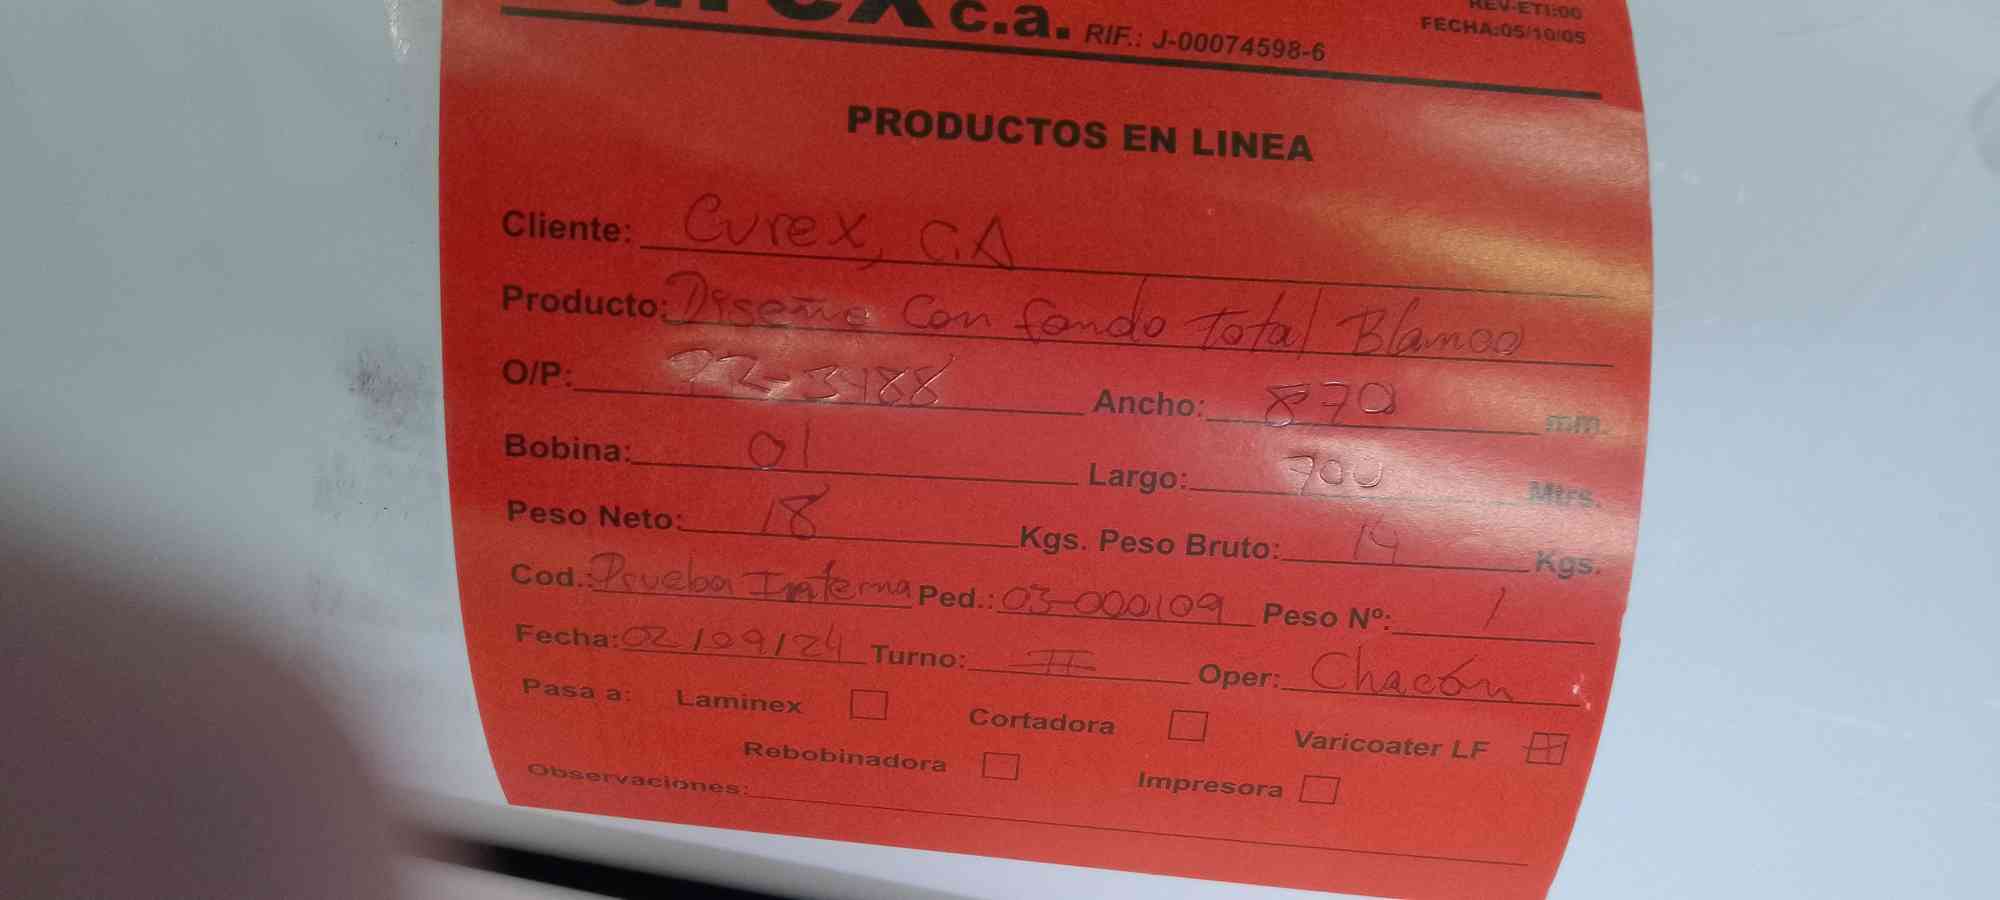 c.a. RIF.: J-00074598-6
REV-ETI:00
FECHA:05/10/05
PRODUCTOS EN LINEA
Cliente: Curex, C.A
Producto: Diseño Con fondo total Blanco
O/P: 22-3188 Ancho: 870 mm.
Bobina: 01 Largo: 700 Mtrs.
Peso Neto: 18 Kgs. Peso Bruto: 14 Kgs.
Cod.: Prueba Interna Ped.: 03-000109 Peso Nº: 1
Fecha: 02/09/24 Turno: II Oper: Chacón
Pasa a: Laminex Cortadora Varicoater LF
Rebobinadora Impresora
Observaciones: